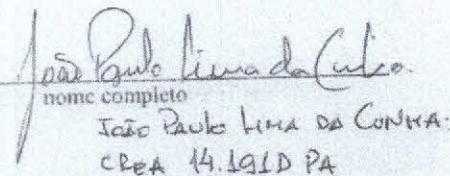 João Paulo Lima da Cunha.
nome completo
JOÃO PAULO LIMA DA CUNHA.
CREA 14.191D PA